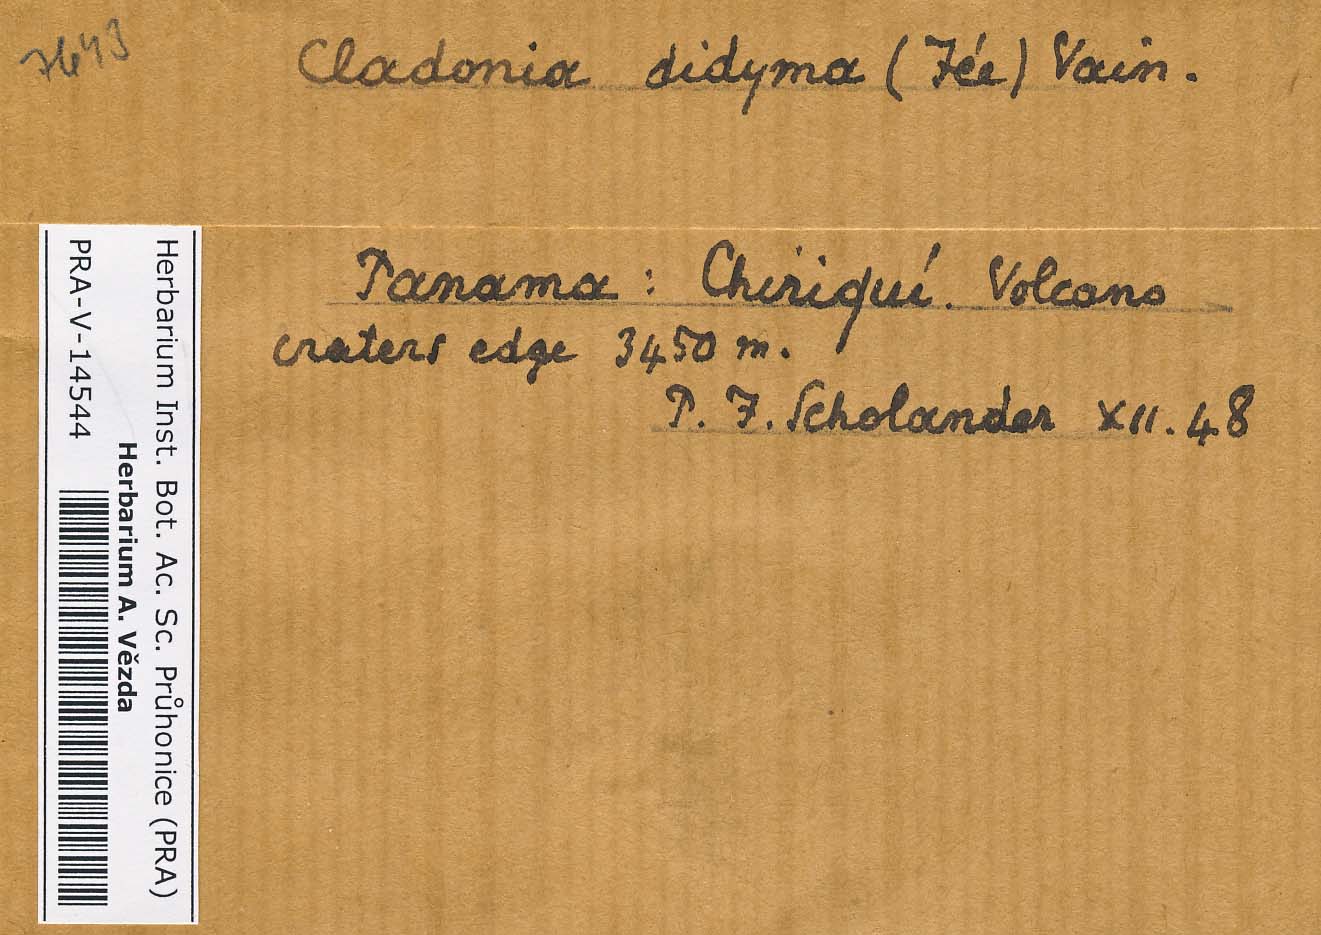 7643
Cladonia didyma (Fée) Vain.
Panama: Chiriquí. Volcano
craters edge 3450 m.
P. F. Scholander XII. 48
Herbarium Inst. Bot. Ac. Sc. Průhonice (PRA)
Herbarium A. Vězda
PRA-V-14544